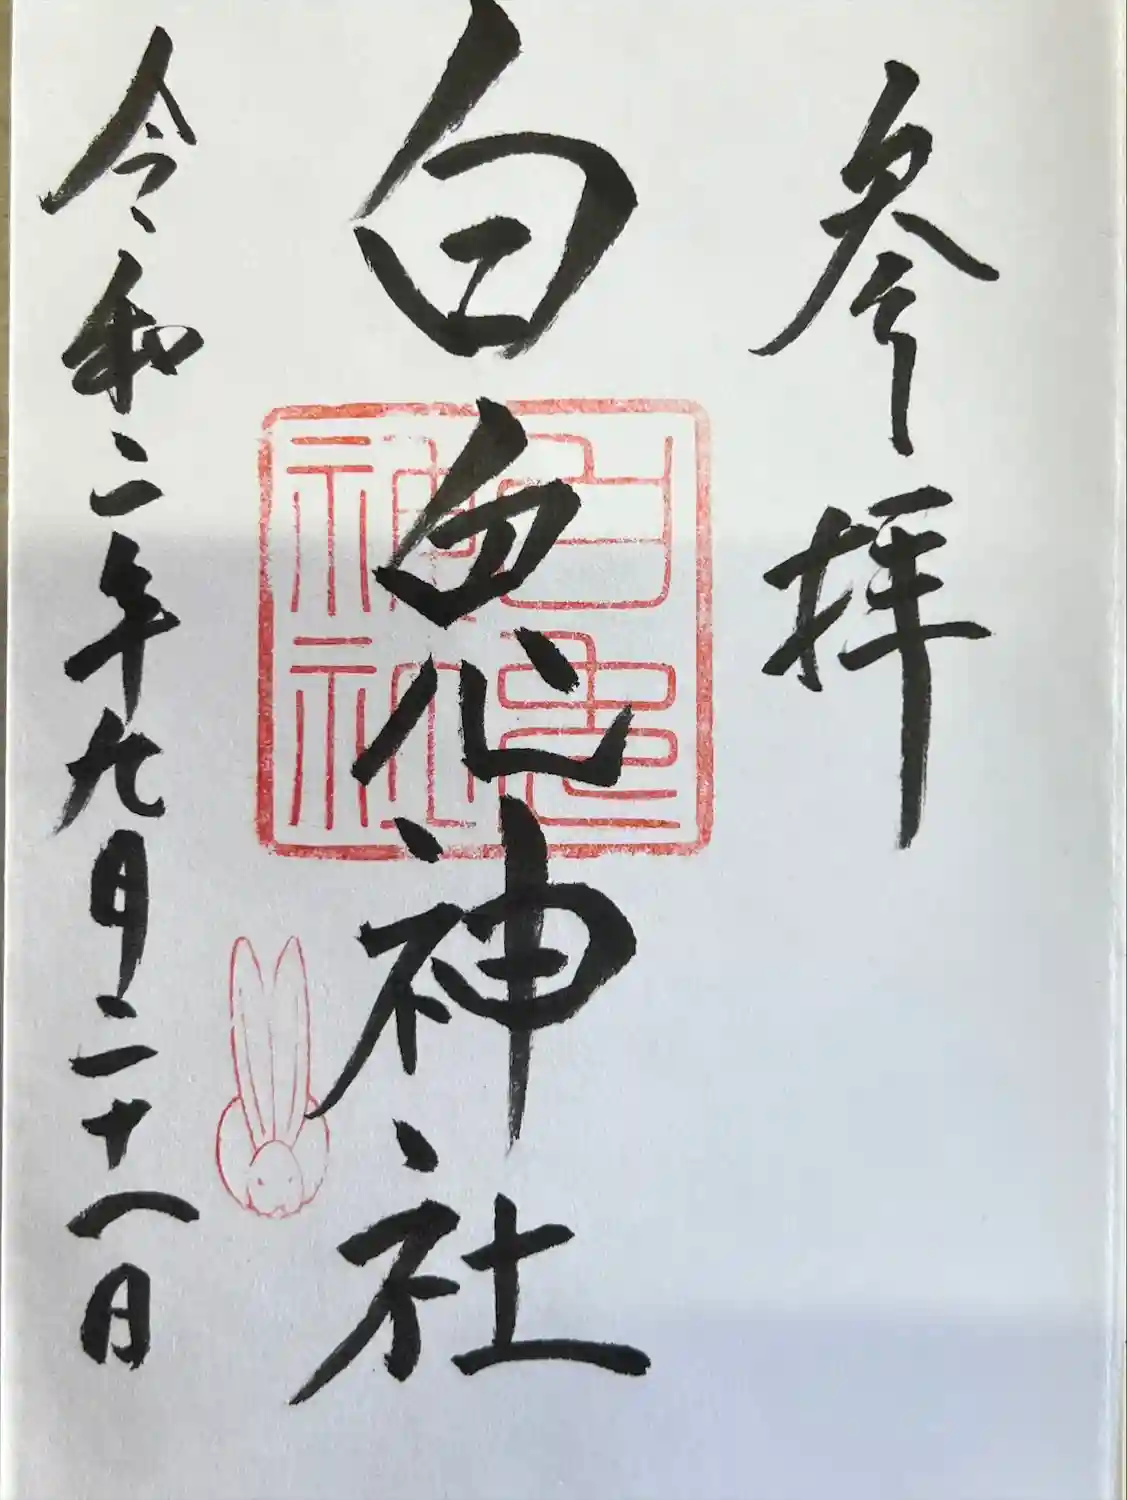 参拝
白兎神社
令和二年九月二十八日
白兎
神社